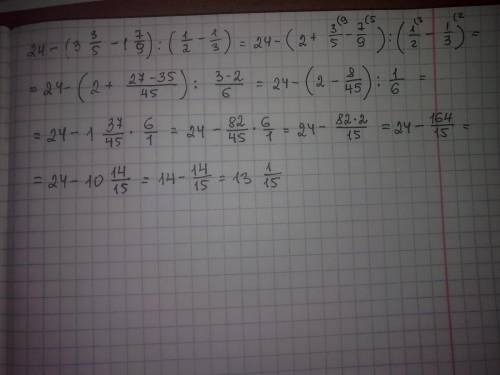 24 - (3 3/5 - 1 7/9) : (1/2 - 1/3) = 24 - (2 + 3/5 (9 - 7/9 (5) : (1/2 (3 - 1/3 (2) =
= 24 - (2 + 27-35/45) : 3-2/6 = 24 - (2 - 8/45) : 1/6 =
= 24 - 1 37/45 · 6/1 = 24 - 82/45 · 6/1 = 24 - 82·2/15 = 24 - 164/15 =
= 24 - 10 14/15 = 14 - 14/15 = 13 1/15